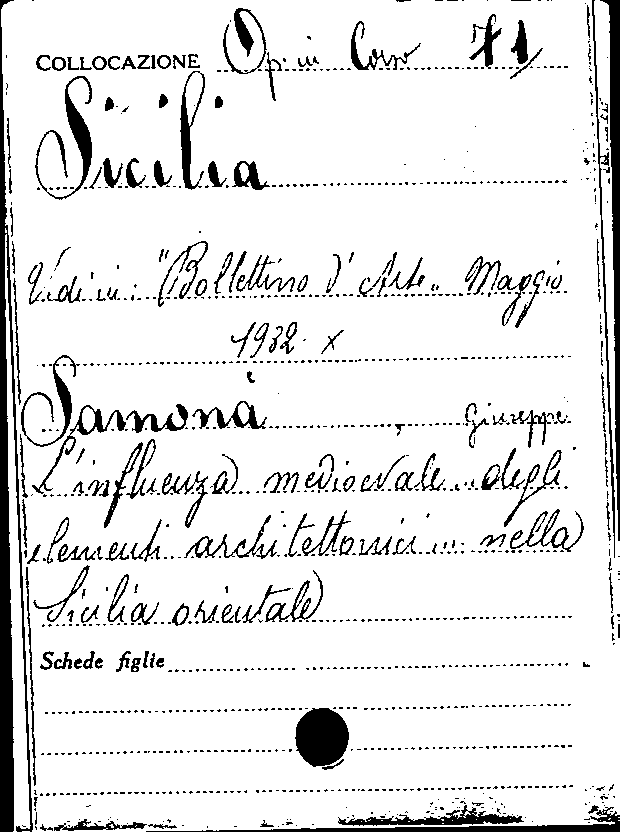 COLLOCAZIONE Op. in Corso 71
Sicilia
Vedi in: "Bollettino d'Arte" Maggio
1932. X
Samonà, Giuseppe
L'influenza medioevale ... degli
elementi architettonici ... nella
Sicilia orientale
Schede figlie